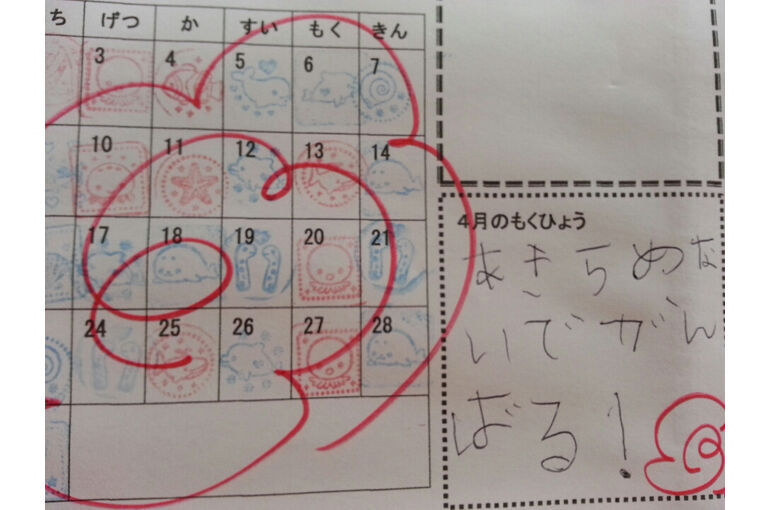 ち げつ か すい もく きん
3 4 5 6 7
10 11 12 13 14
17 18 19 20 21
24 25 26 27 28
4月のもくひょう
あきらめな
いでがん
ばる！